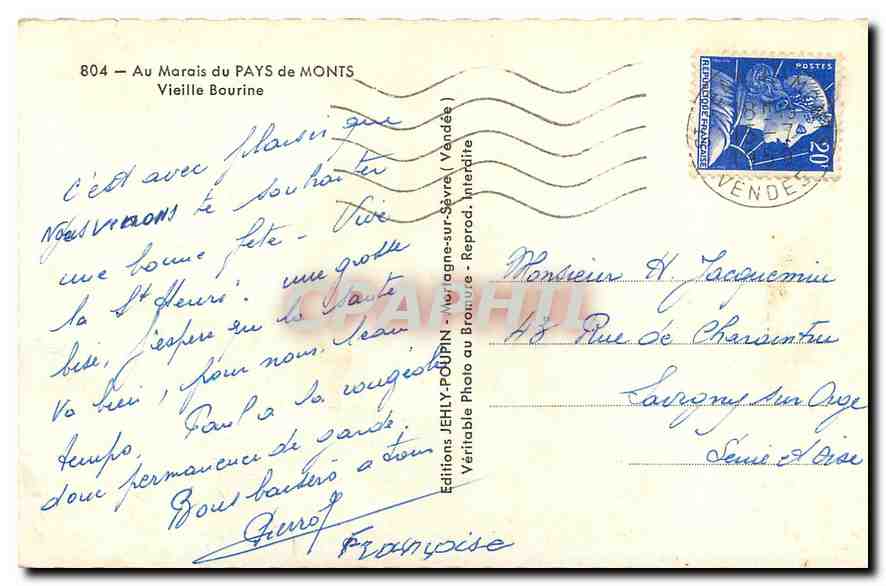 804 — Au Marais du PAYS de MONTS
Vieille Bourine
c'est avec plaisir que
Nous venons te souhaiter
une bonne fête - Vive
la St Henri. une grosse
bise, j'espère que la santé
va bien, pour nous, beau
temps. Paul a la rougéole
donc permanence de garde.
Bons baisers à tous
Pierrot
Françoise
Editions JEHLY-POUPIN - Mortagne-sur-Sèvre (Vendée)
Véritable Photo au Bromure - Reprod. Interdite
CPAPHIL
POSTES
REPUBLIQUE FRANÇAISE
20F
VENDEE
Monsieur H. Jacquemin
43 Rue de Charaintru
Savigny sur Orge
Seine & Oise